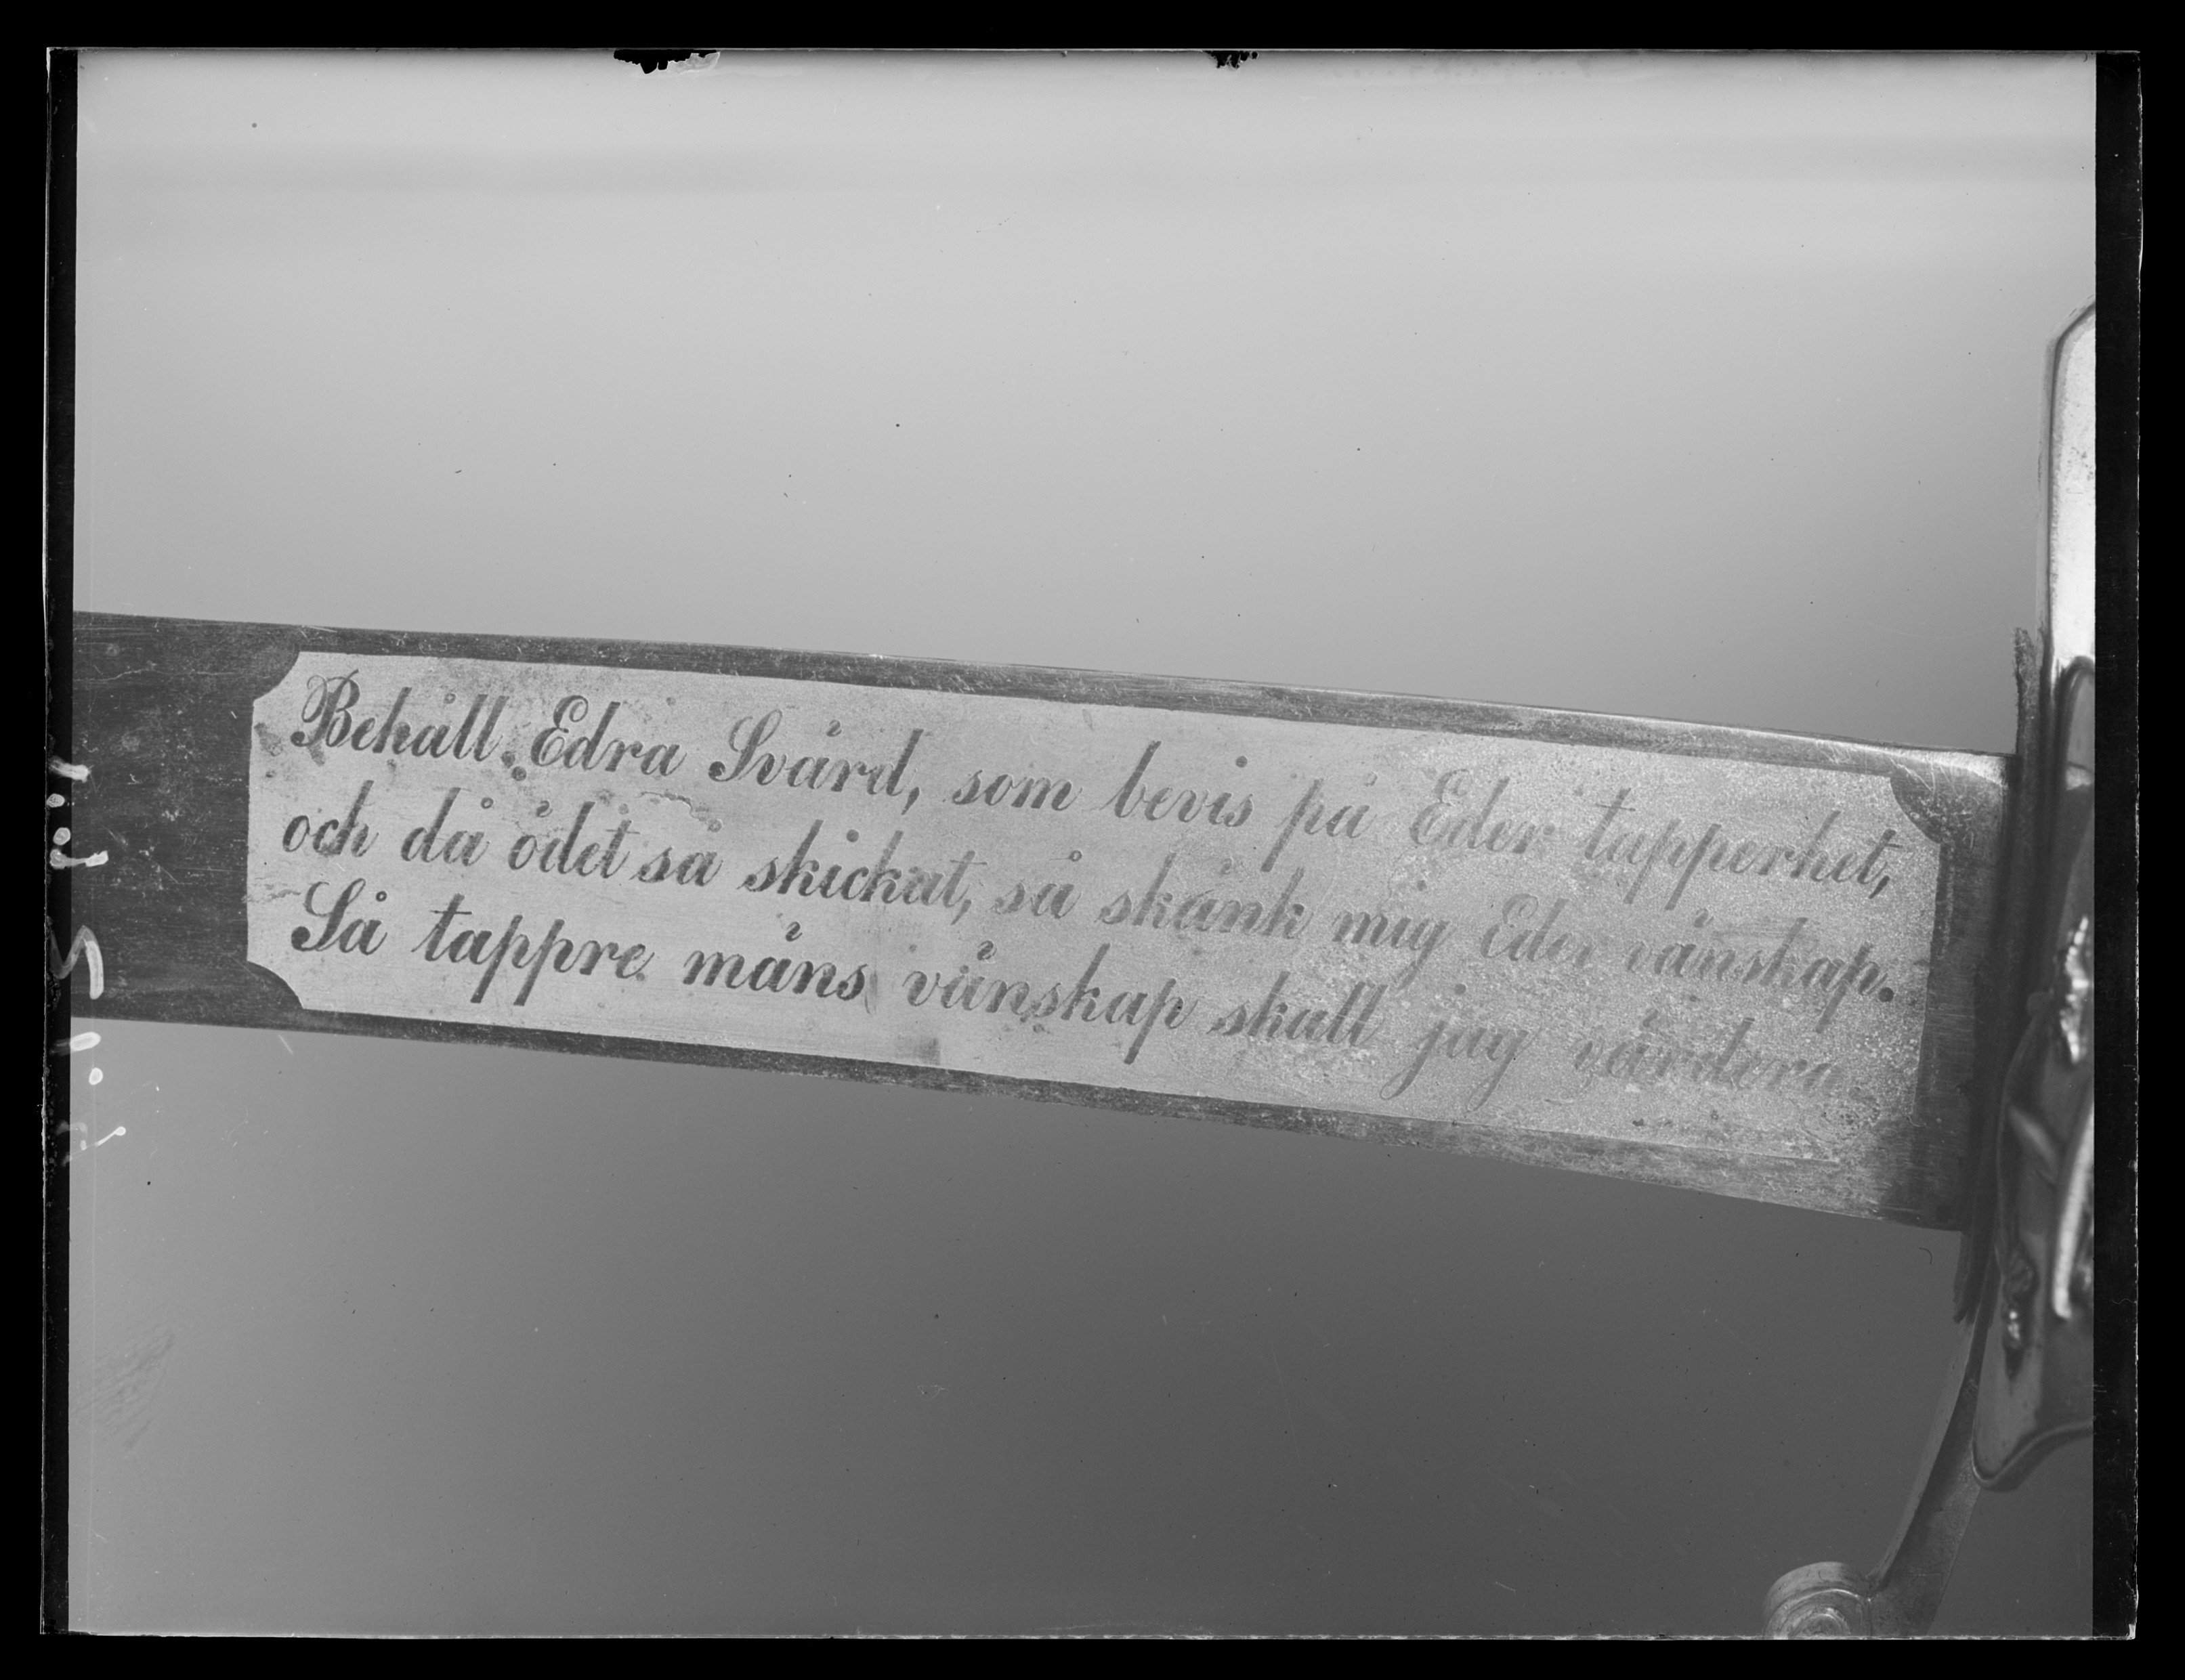 Behåll Edra Svård, som bevis på Eder tapperhet,
och då ödet så skickat, så skånk mig Eder vånskap.
Så tappre måns vånskap skall jag vårdera